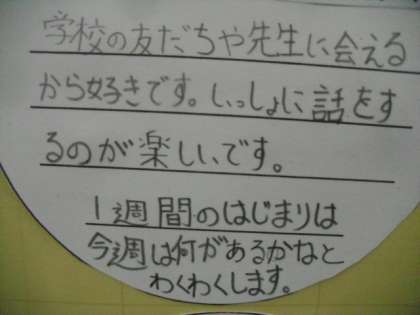 学校の友だちや先生に会える
から好きです。いっしょに話をす
るのが楽しいです。
1週間のはじまりは
今週は何があるかなと
わくわくします。